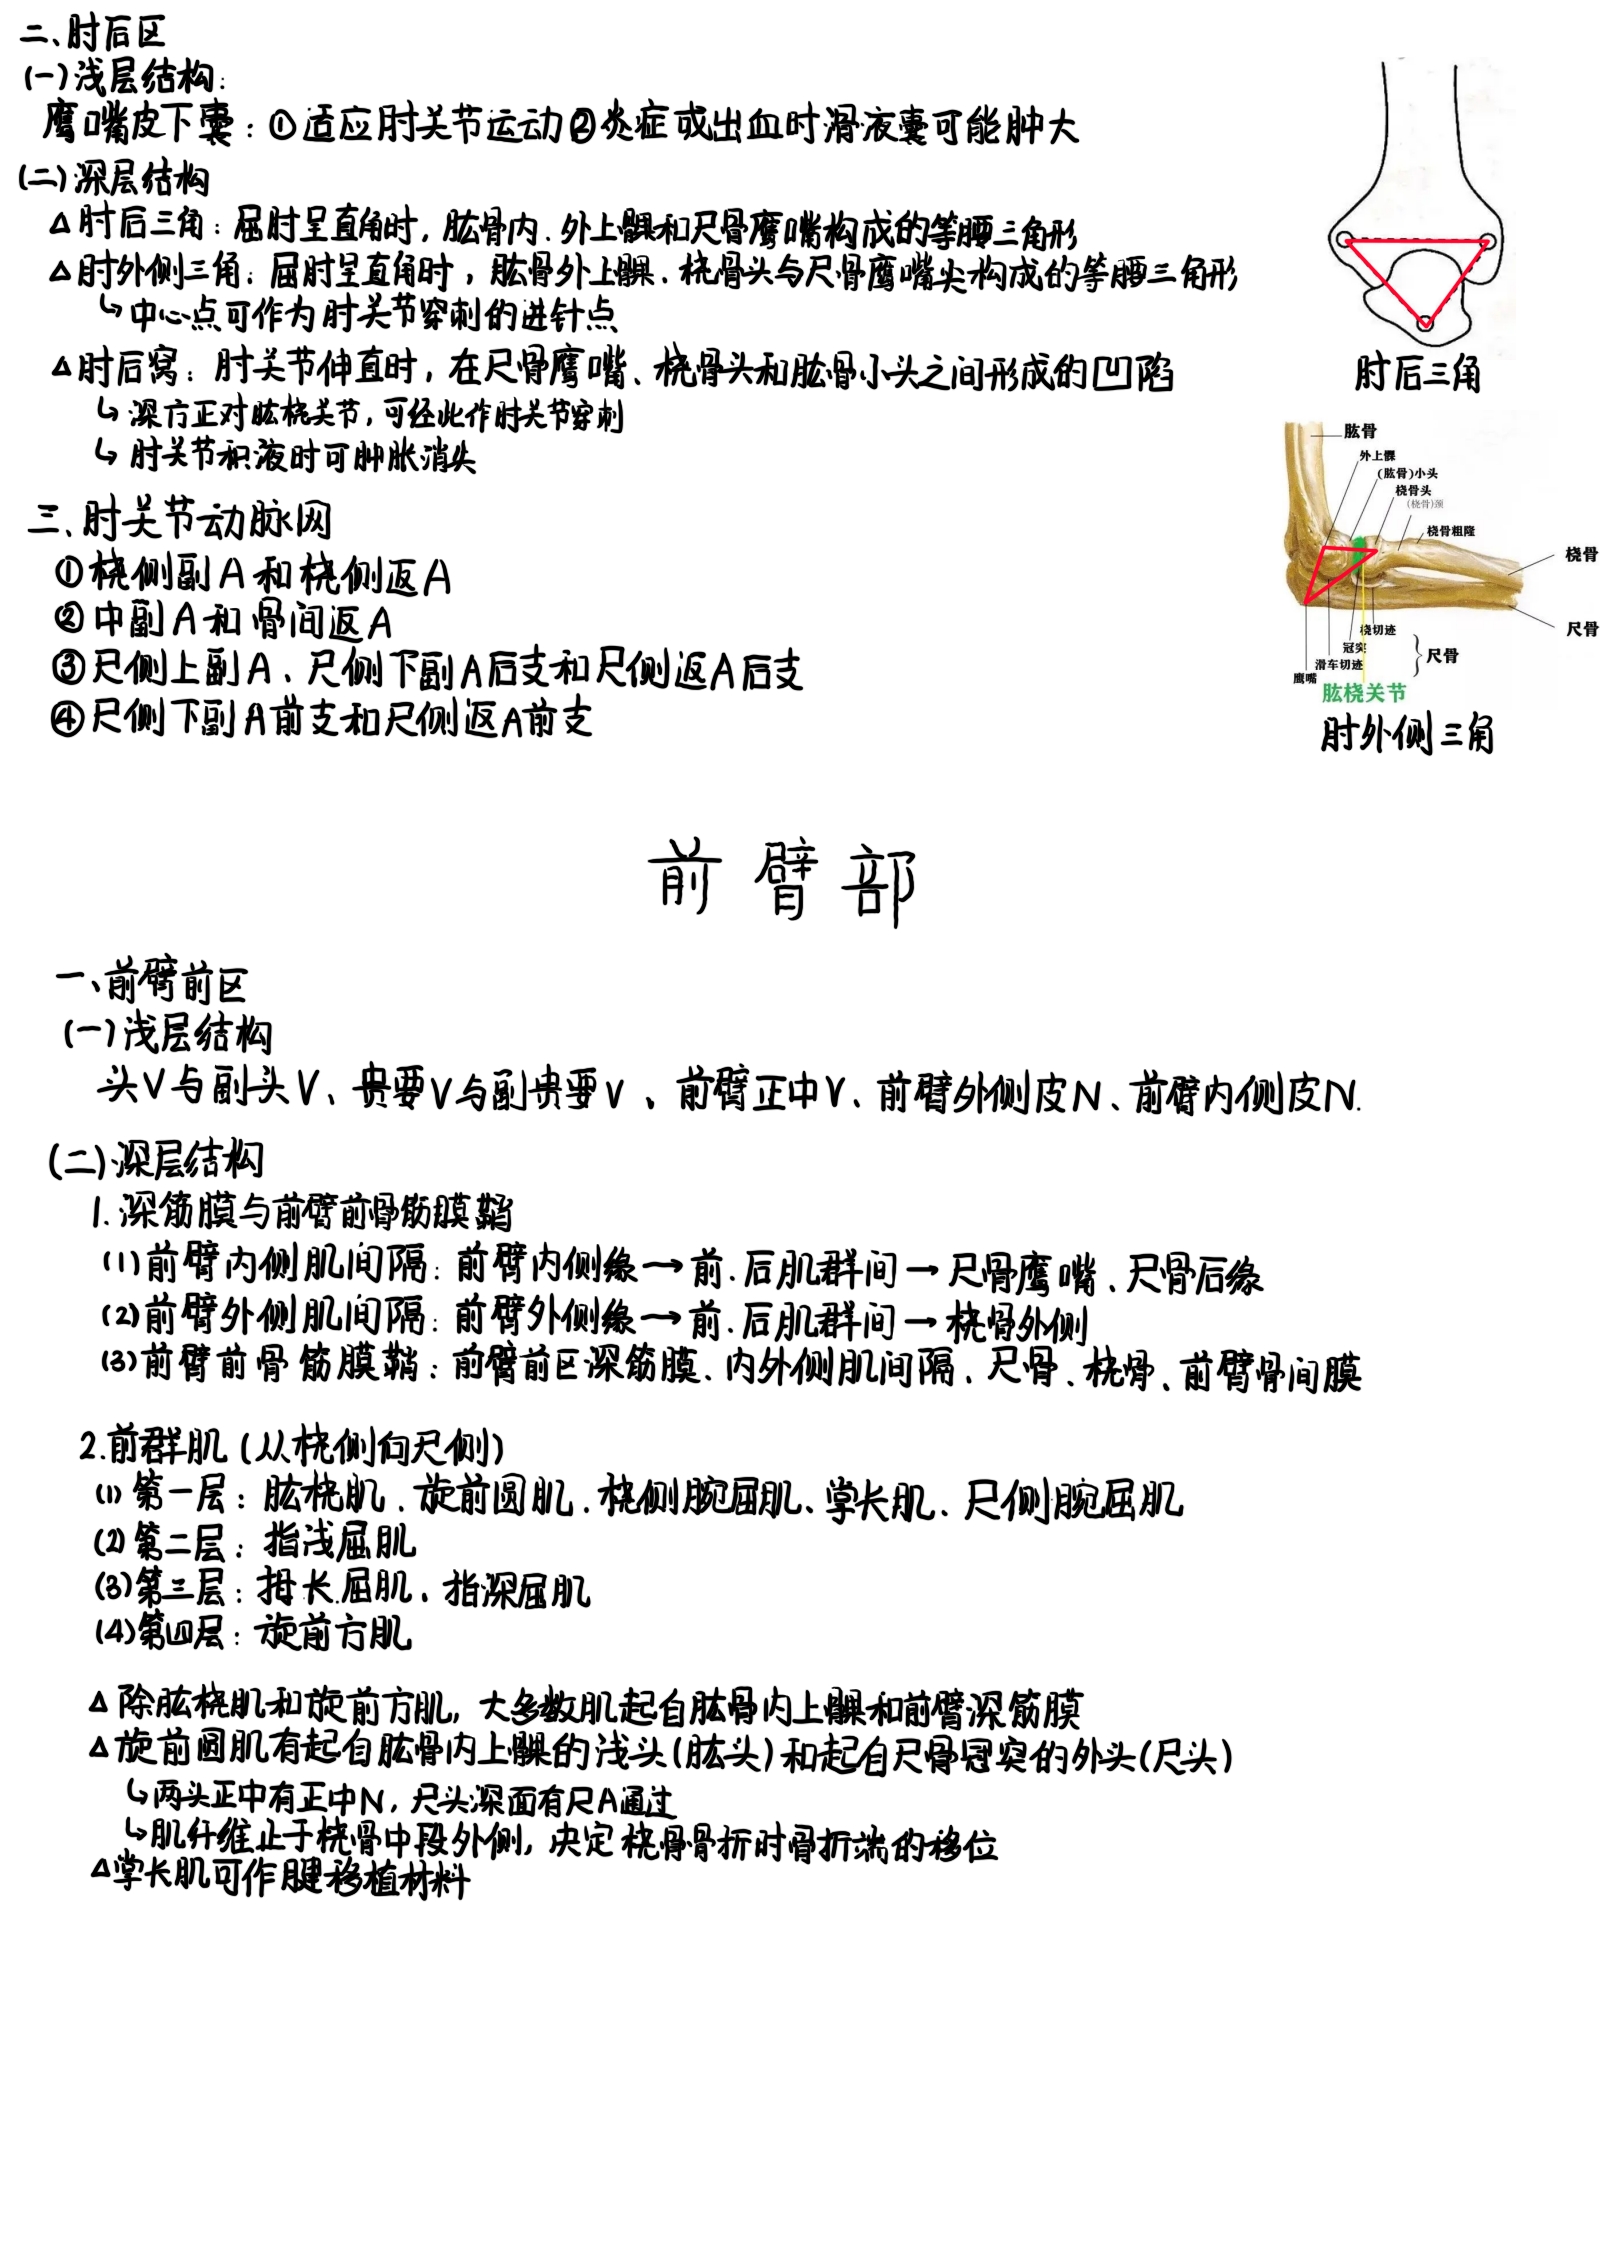 二、肘后区
(一)浅层结构:
鹰嘴皮下囊:①适应肘关节运动②炎症或出血时滑液囊可能肿大
(二)深层结构
△肘后三角:屈肘呈直角时,肱骨内、外上髁和尺骨鹰嘴构成的等腰三角形
△肘外侧三角:屈肘呈直角时,肱骨外上髁、桡骨头与尺骨鹰嘴尖构成的等腰三角形
↳中心点可作为肘关节穿刺的进针点
△肘后窝:肘关节伸直时,在尺骨鹰嘴、桡骨头和肱骨小头之间形成的凹陷
↳深方正对肱桡关节,可经此作肘关节穿刺
↳肘关节积液时可肿胀消失
肘后三角
肱骨
外上髁
(肱骨)小头
桡骨头
(桡骨)颈
桡骨粗隆
桡骨
尺骨
桡切迹
冠突
滑车切迹
鹰嘴
}尺骨
肱桡关节
肘外侧三角
三、肘关节动脉网
①桡侧副A和桡侧返A
②中副A和骨间返A
③尺侧上副A、尺侧下副A后支和尺侧返A后支
④尺侧下副A前支和尺侧返A前支
前臂部
一、前臂前区
(一)浅层结构
头V与副头V、贵要V与副贵要V、前臂正中V、前臂外侧皮N、前臂内侧皮N.
(二)深层结构
1.深筋膜与前臂前骨筋膜鞘
(1)前臂内侧肌间隔:前臂内侧缘→前、后肌群间→尺骨鹰嘴、尺骨后缘
(2)前臂外侧肌间隔:前臂外侧缘→前、后肌群间→桡骨外侧
(3)前臂前骨筋膜鞘:前臂前区深筋膜、内外侧肌间隔、尺骨、桡骨、前臂骨间膜
2.前群肌(从桡侧向尺侧)
(1)第一层:肱桡肌、旋前圆肌、桡侧腕屈肌、掌长肌、尺侧腕屈肌
(2)第二层:指浅屈肌
(3)第三层:拇长屈肌、指深屈肌
(4)第四层:旋前方肌
△除肱桡肌和旋前方肌,大多数肌起自肱骨内上髁和前臂深筋膜
△旋前圆肌有起自肱骨内上髁的浅头(肱头)和起自尺骨冠突的外头(尺头)
↳两头正中有正中N,尺头深面有尺A通过
↳肌纤维止于桡骨中段外侧,决定桡骨骨折时骨折端的移位
△掌长肌可作腱移植材料